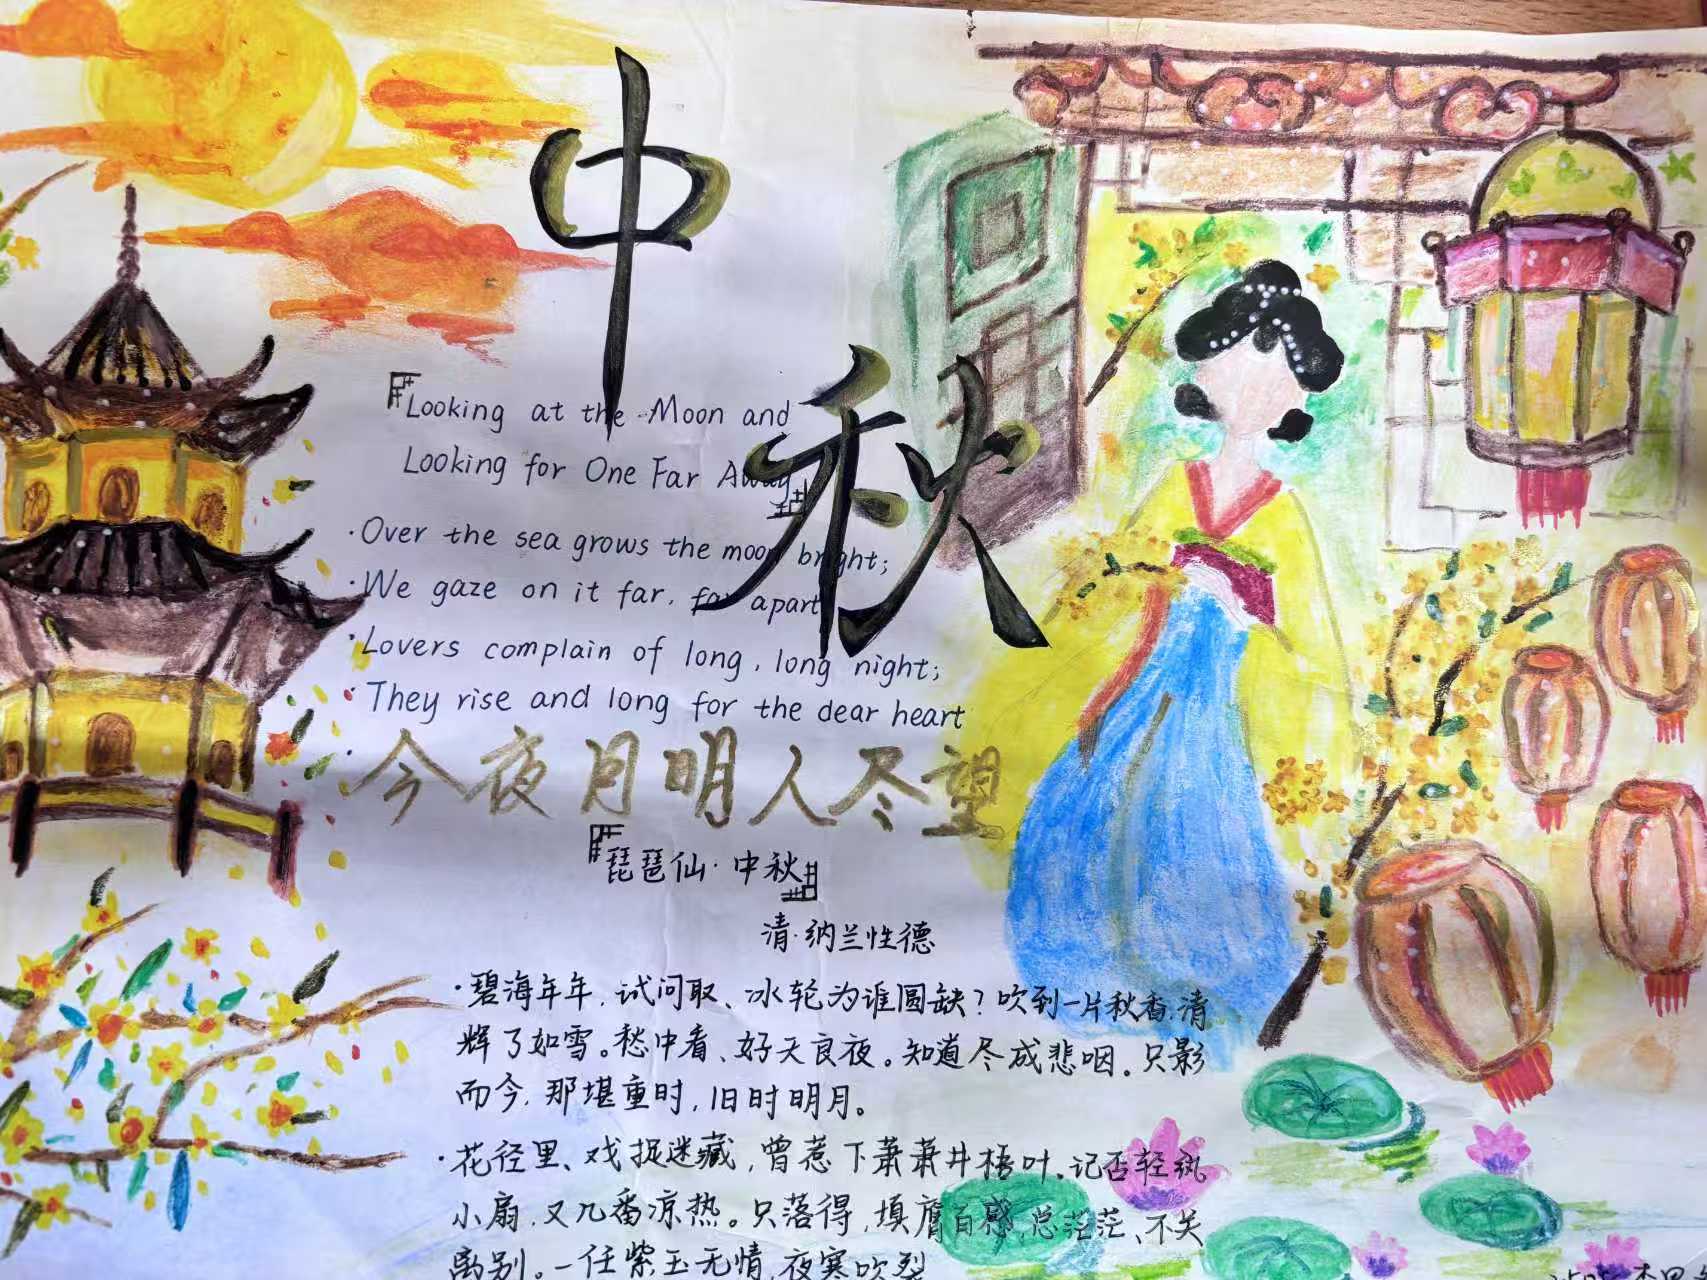 中秋
『Looking at the Moon and
Looking for One Far Away』
·Over the sea grows the moon bright;
·We gaze on it far, far apart
·Lovers complain of long, long night;
·They rise and long for the dear heart
今夜月明人尽望
『琵琶仙·中秋』
清·纳兰性德
·碧海年年,试问取、冰轮为谁圆缺?吹到一片秋香,清
辉了如雪。愁中看、好天良夜。知道尽成悲咽。只影
而今,那堪重时,旧时明月。
·花径里、戏捉迷藏,曾惹下萧萧井梧叶。记否轻纨
小扇,又几番凉热。只落得,填膺百感,总茫茫、不关
离别。一任紫玉无情,夜寒吹裂